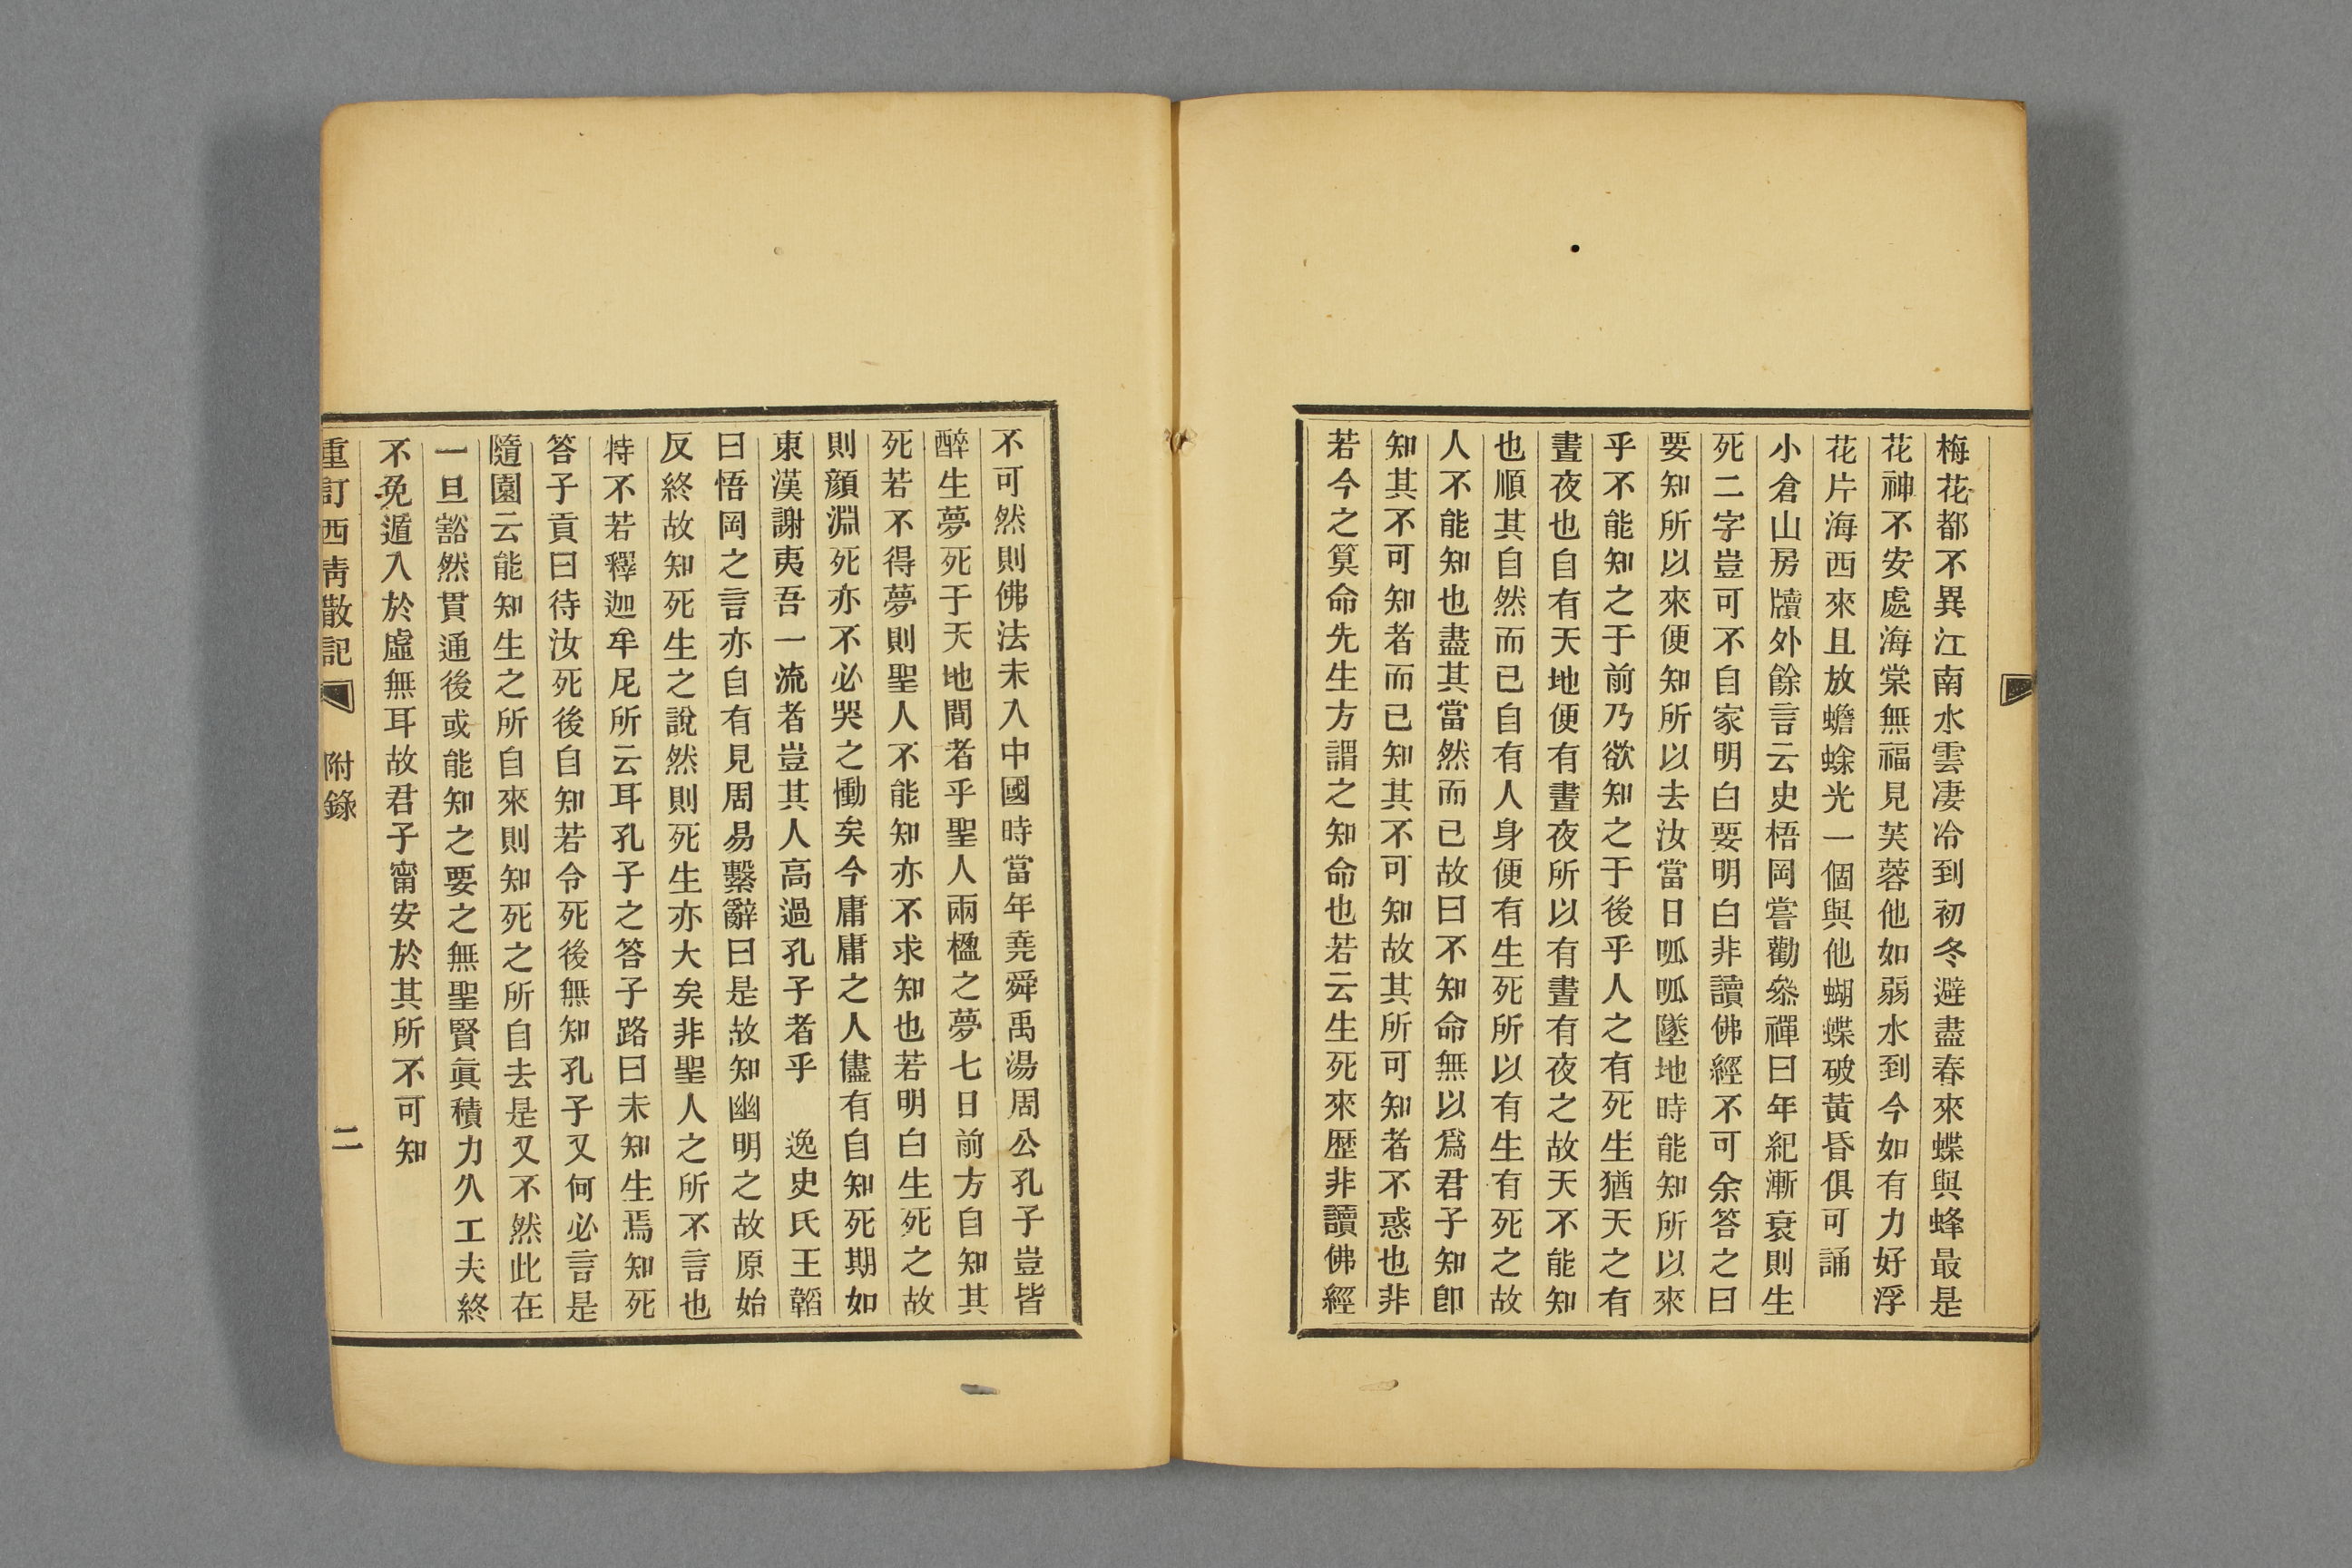 梅花都不異江南水雲凄冷到初冬避盡春來蝶與蜂最是
花神不安處海棠無福見芙蓉他如弱水到今如有力好浮
花片海西來且放蟾蜍光一個與他蝴蝶破黃昏俱可誦
小倉山房牘外餘言云史梧岡嘗勸叅禪曰年紀漸衰則生
死二字豈可不自家明白要明白非讀佛經不可余答之曰
要知所以來便知所以去汝當日呱呱墜地時能知所以來
乎不能知之于前乃欲知之于後乎人之有死生猶天之有
晝夜也自有天地便有晝夜所以有晝有夜之故天不能知
也順其自然而已自有人身便有生死所以有生有死之故
人不能知也盡其當然而已故曰不知命無以爲君子知卽
知其不可知者而已知其不可知故其所可知者不惑也非
若今之筭命先生方謂之知命也若云生死來歷非讀佛經
不可然則佛法未入中國時當年堯舜禹湯周公孔子豈皆
醉生夢死于天地間者乎聖人兩楹之夢七日前方自知其
死若不得夢則聖人不能知亦不求知也若明白生死之故
則顔淵死亦不必哭之慟矣今庸庸之人儘有自知死期如
東漢謝夷吾一流者豈其人高過孔子者乎　逸史氏王韜
曰悟岡之言亦自有見周易繫辭曰是故知幽明之故原始
反終故知死生之說然則死生亦大矣非聖人之所不言也
特不若釋迦牟尼所云耳孔子之答子路曰未知生焉知死
答子貢曰待汝死後自知若令死後無知孔子又何必言是
隨園云能知生之所自來則知死之所自去是又不然此在
一旦豁然貫通後或能知之要之無聖賢眞積力久工夫終
不免遁入於虛無耳故君子甯安於其所不可知
重訂西靑散記　附錄　二